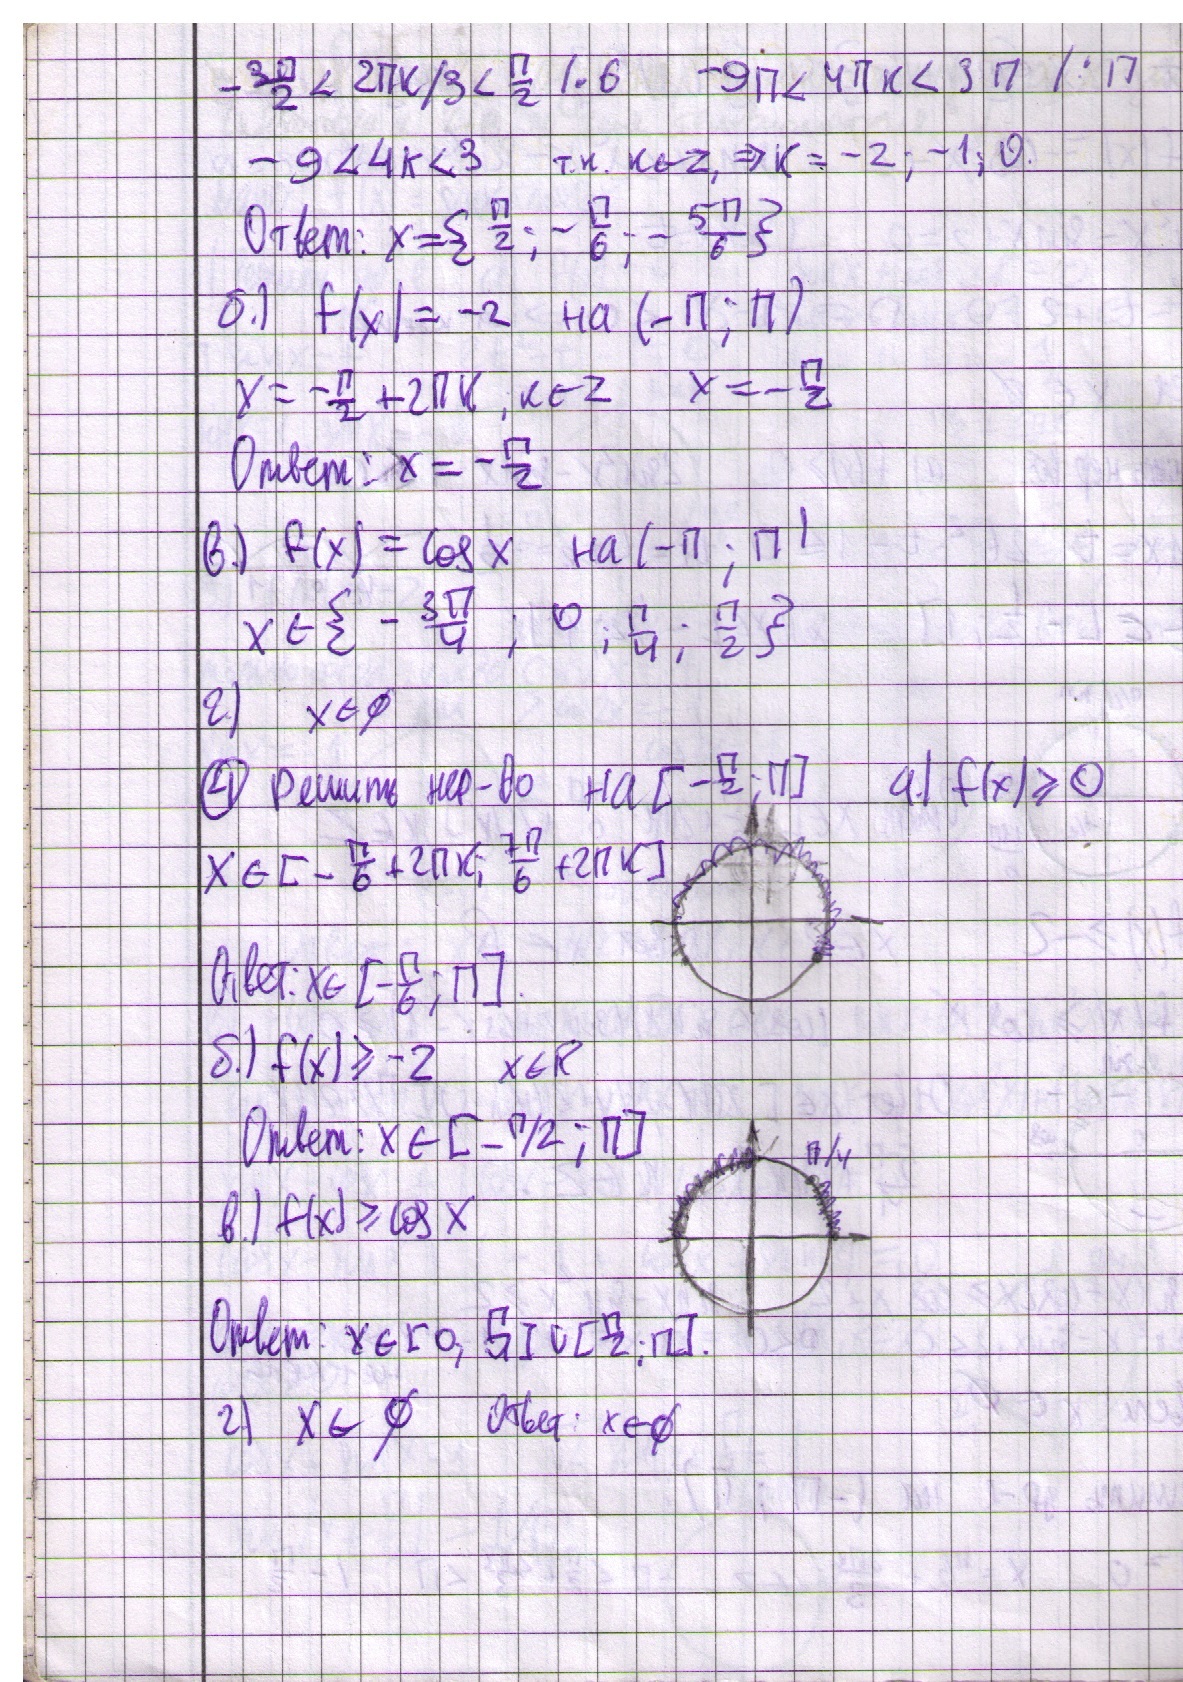 -3π/2 < 2πk/3 < π/2 /·6 -9π < 4πk < 3π /:π
-9 < 4k < 3 т.к. k∈Z, ⇒ k = -2; -1; 0.
Ответ: x={π/2; -π/6; -5π/6}
б.) f(x) = -2 на (-π; π)
x = -π/2 + 2πk, k∈Z x = -π/2
Ответ: x = -π/2
в.) f(x) = cos x на (-π; π)
x∈{-3π/4; 0; π/4; π/2}
г.) x∈∅
② Решить нер-во на [-π/2; π] а.) f(x) ≥ 0
x∈[-π/6+2πk; 7π/6+2πk]
Ответ: x∈[-π/6; π].
б.) f(x) ≥ -2 x∈R
Ответ: x∈[-π/2; π]
π/4
в.) f(x) ≥ cos x
Ответ: x∈[0, π/4]∪[π/2; π].
г) x∈∅ Ответ: x∈∅